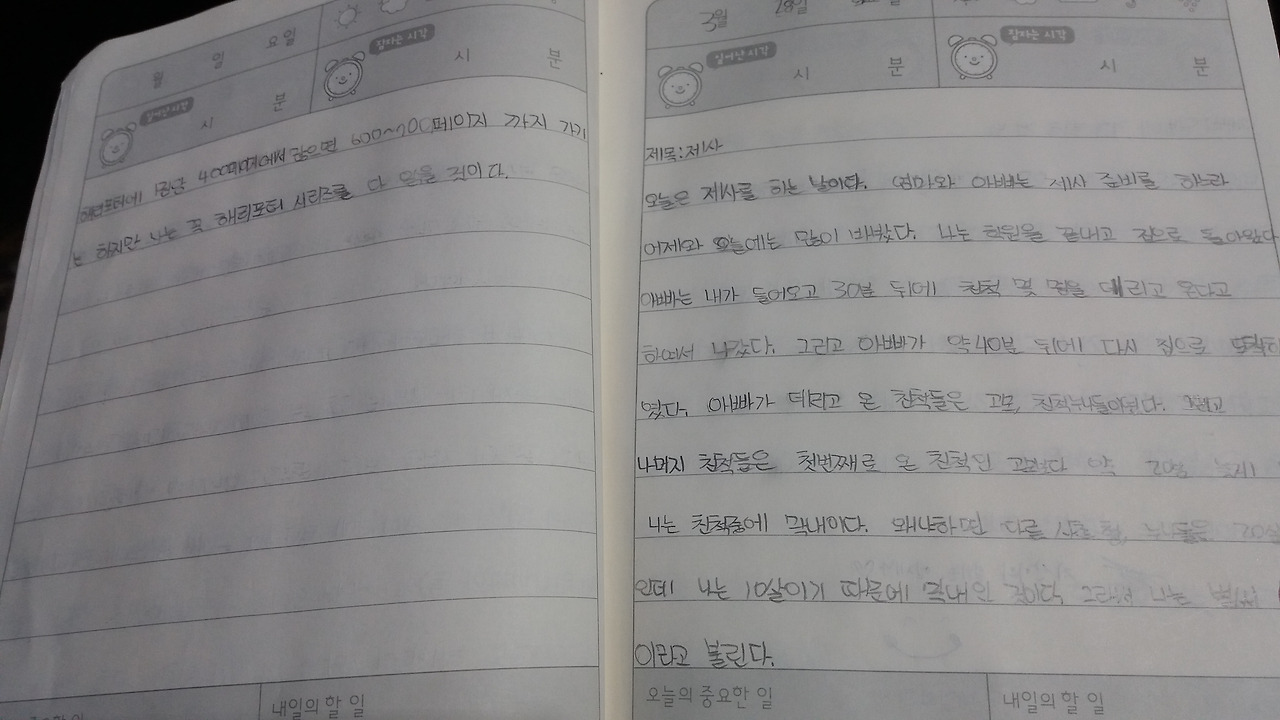 월 일 요일
잠자는 시각
시 분
일어난 시각
시 분
해리포터에 1권은 에서 많으면 600~700페이지 까지 가기
는 하지만 나는 꼭 해리포터 시리즈를 다 읽을 것이다.
내일의 할 일
3월
일어난 시각
시 분
잠자는 시각
시 분
제목:제사
오늘은 제사를 하는 날이다. 엄마와 아빠는 제사 준비를 하느라
어제와 오늘에는 많이 바빴다. 나는 학원을 끝내고 집으로 돌아왔다
아빠는 내가 들어오고 30분 뒤에 친척 몇 명을 데리고 온다고
하여서 나갔다. 그리고 아빠가 약40분 뒤에 다시 집으로 도착하
였다. 아빠가 데리고 온 친척들은 고모,
나머지 친척들은 첫번째로 온 친척인 약 20분
나는 친척들에 막내이다. 왜냐하면 다른 사촌 형, 누나들은 20살
인데 나는 10살이기 때문에 막내인 것이다. 그래서 나는
이라고 불린다.
오늘의 중요한 일
내일의 할 일